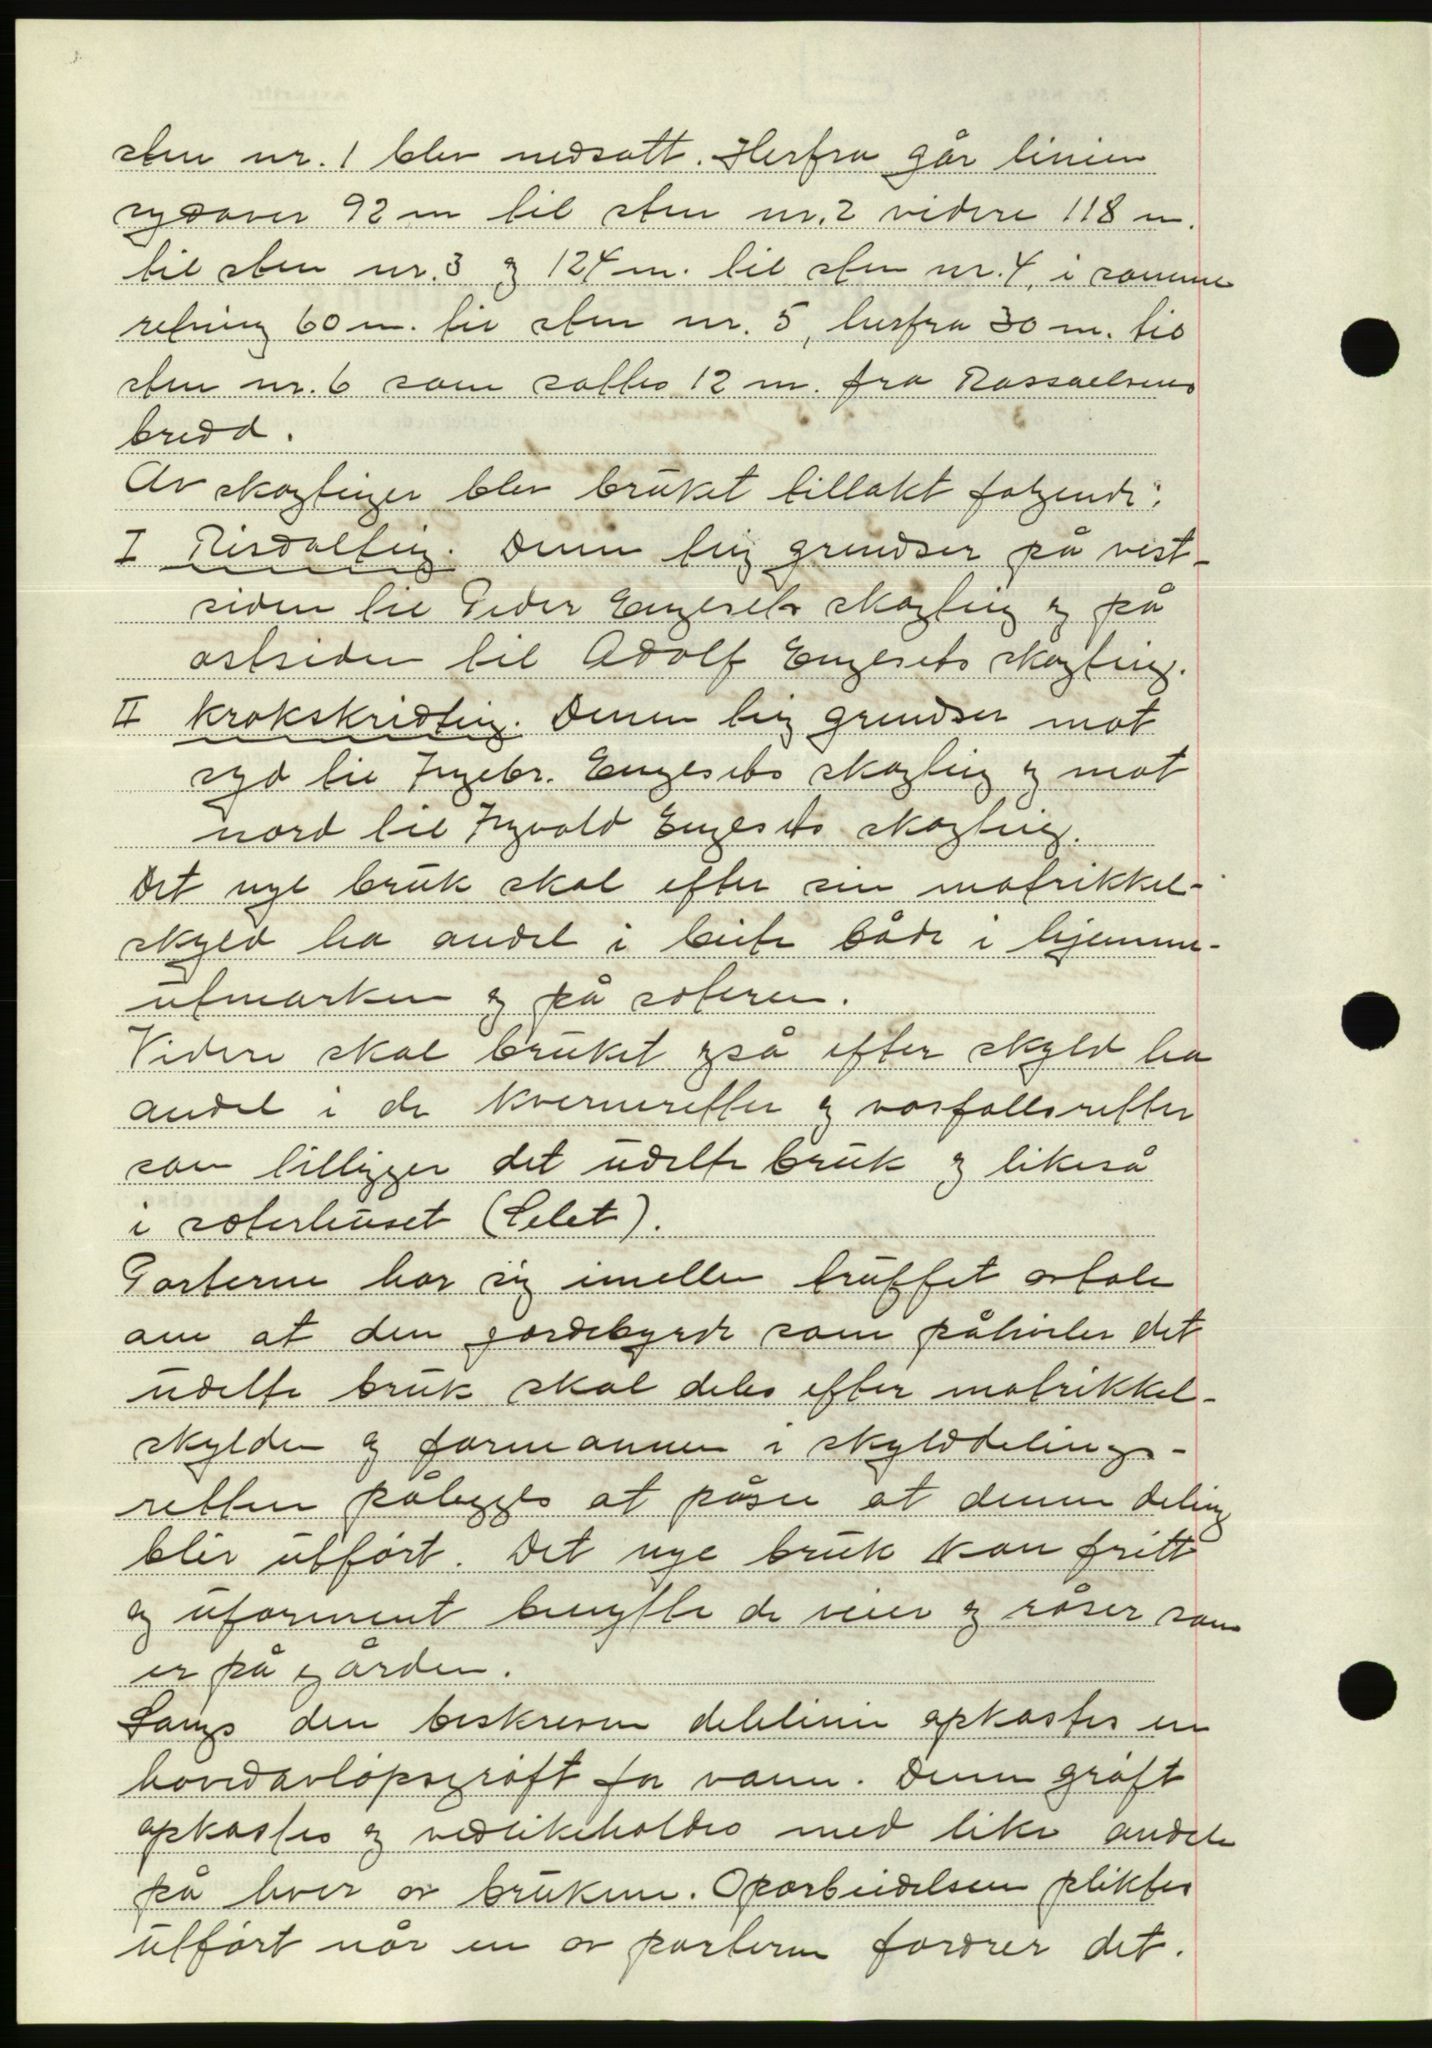 sten nr. 1 blev nedsatt. Herfra går linien
sydover 92 m til sten nr. 2 videre 118 m.
til sten nr. 3 og 124 m. til sten nr. 4, i samme
retning 60 m. til sten nr. 5, herfra 30 m. til
sten nr. 6 som sattes 12 m. fra Rassaelvens
bredd.
Av skogteiger blev bruket tillakt følgende:
I Risdalteig. Denne teig grendser på vest-
siden til Peder Engesets skogteig og på
østsiden til Adolf Engesets skogteig.
II Krokskridteig. Denne teig grendser mot
syd til Ingebr. Engesets skogteig og mot
nord til Ingvald Engesets skogteig.
Det nye bruk skal efter sin matrikkel-
skyld ha andel i beite både i hjemme-
utmarken og på sæteren.
Videre skal bruket også efter skyld ha
andel i de kvernretter og vasfallsretter
som tilligger det udelte bruk og likeså
i sæterhuset (Selet).
Parterne har sig imellem truffet avtale
om at den gjerdebyrde som påhviler det
udelte bruk skal deles efter matrikkel-
skylden og formannen i skylddelings-
retten pålegges at påse at denne deling
blir utført. Det nye bruk kan fritt
og uforment benytte de veier og råser som
er på gården.
Langs den beskreven delelinie opkastes en
hovedavløpsgrøft for vann. Denne grøft
opkastes og vedlikeholdes med like andele
på hver av brukene. Oparbeidelsen pliktes
utført når en av parterne fordrer det.